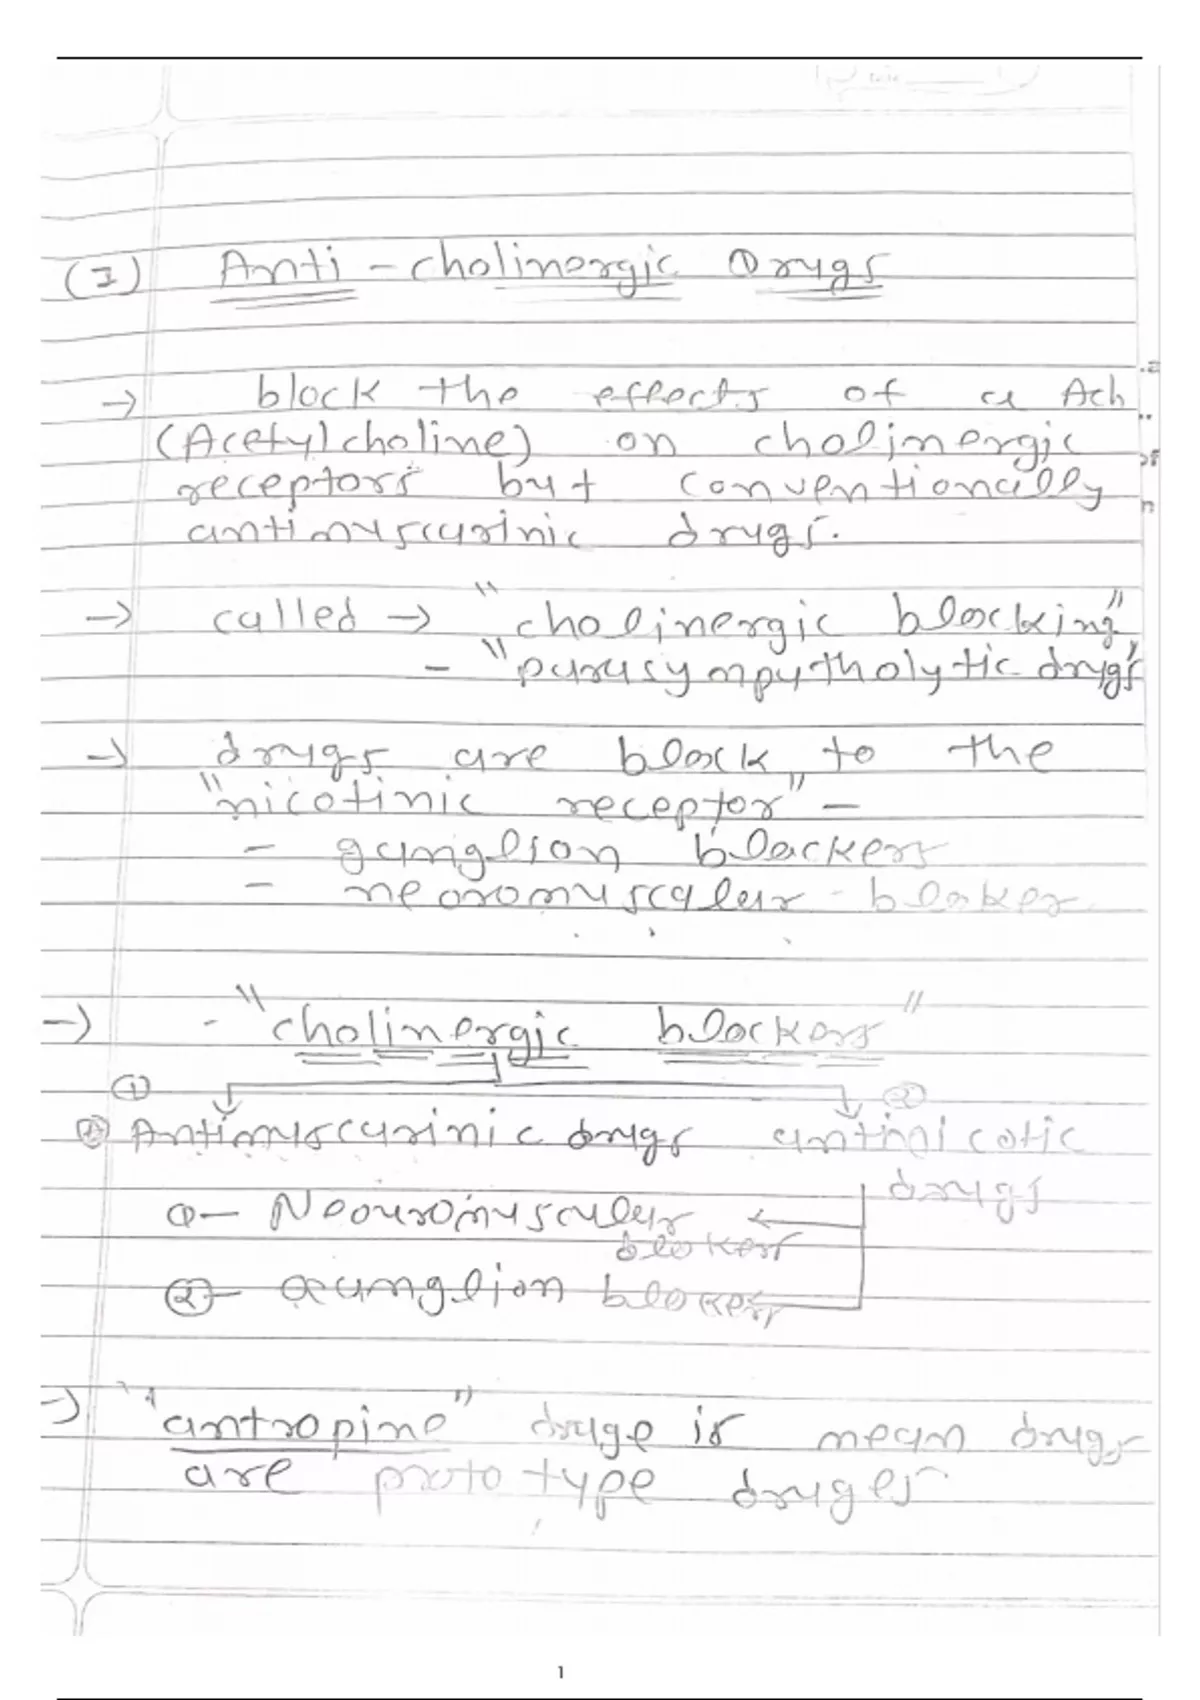 (I) Anti-cholinergic Drugs
→ block the effects of a Ach
(Acetylcholine) on cholinergic
receptors but conventionally
antimuscarinic drugs.
→ called → "cholinergic blocking"
- "parasympatholytic drugs"
→ drugs are block to the
"nicotinic receptor" –
- ganglion blockers
- neoromuscaler - bloker
→ - "cholinergic blockers"
① ②
Antimuscarinic drugs antinicotic
drugs
①– Neouromusculear
blokers
②– Ganglion blokers
→ "antropine" druge is mean drugs
are proto type druges
1